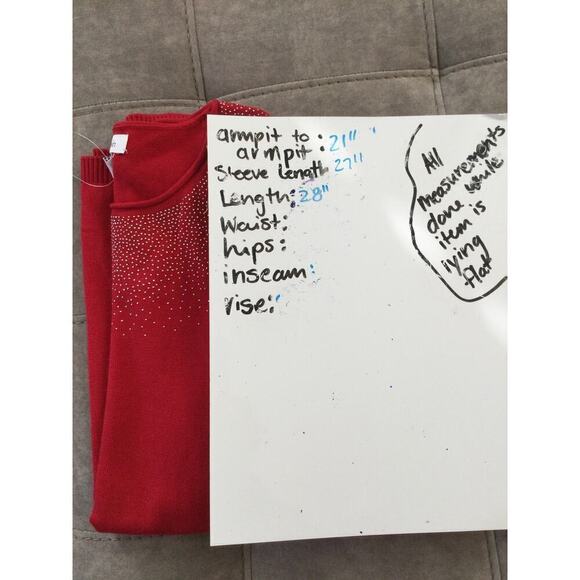 armpit to
armpit: 21"
Sleeve Length 27"
Length: 28"
Waist:
hips:
inseam:
rise:
All
measurements
done while
item is
lying
flat